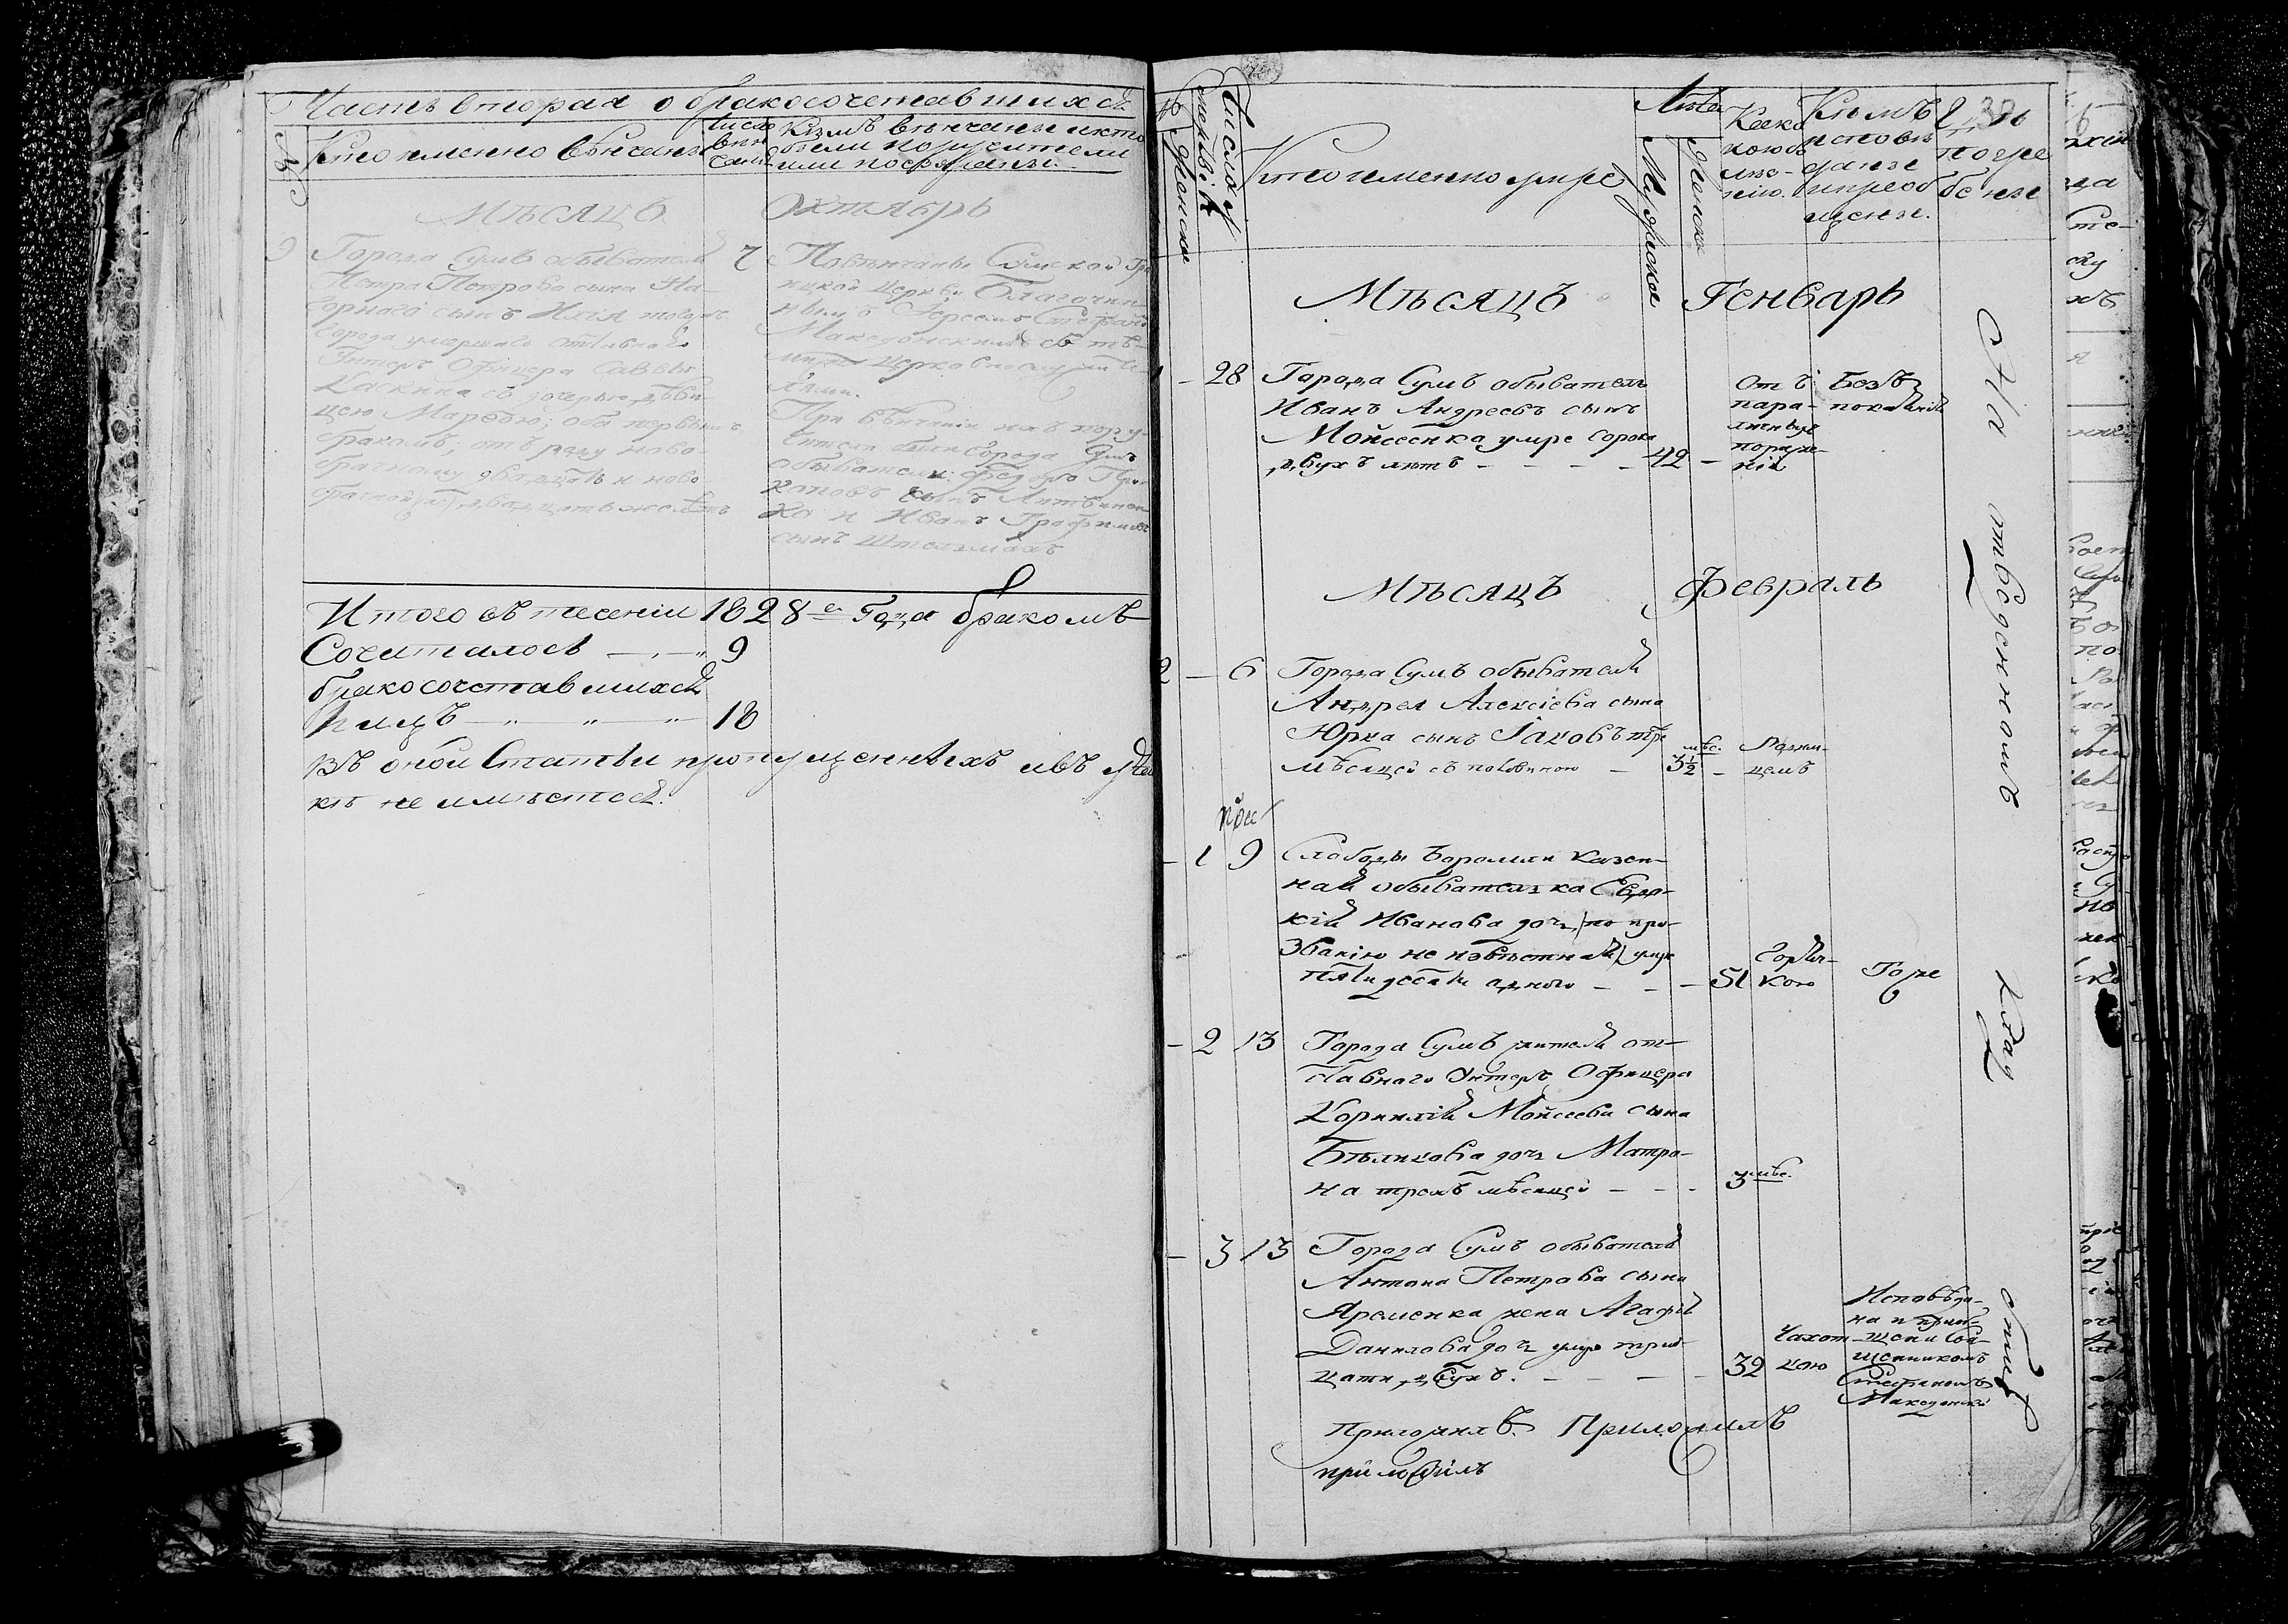 Часть вторая о бракосочетавшихся
№
Кто именно венчаны
Число вен чанія
Кѣмъ венчаны и кто
были поручители
или посяганы.
Мѣсяцъ Октябрь
9
Города Сумъ обывателя
Петра Петрова сына На-
горного сынъ Илія тогожъ
города умершаго отставного
Унтеръ Офицера Саввы
съ дочерью дѣви-
цею Марѳою; оба первымъ
бракомъ; отъ роду ново-
брачному двадцать и ново
брачной двадцать же лѣтъ
7
Повѣнчаны Сумской Тро
ицкой церкви Благочин-
нымъ Іереемъ Стефаномъ
Македонскимъ съ тѣ-
ми церковнослужите-
лями.
При вѣнчаніи ихъ пору-
чители были города Сумъ
обыватели: Федоръ Про-
коповъ сынъ Литвинен-
ко и Иванъ Трофимовъ
сынъ Штельмахъ
Итого въ теченіи 1828-го Года бракомъ
Сочиталось — 9
бракосочетавшихся
лицъ — " — " — " 18
Въ оной Статьи пропущенныхъ
не имѣется.
Число
смерти
женска
Кто именно умре
Лѣта
Мужеска
Женска
Кѣмъ
исповѣ
даны
и пріоб
щены.
Гдѣ
погре
бены
Мѣсяцъ Генварь
1 — 28
Города Сумъ обыватель
Иванъ Андреевъ сынъ
Мойсеенка умре сорока
двухъ лѣтъ — — — — 42 —
Отъ
пара-
личныхъ
пораже-
ній
Безъ
покаянія
На отведенномъ кладбищѣ
Мѣсяцъ Февраль
2 — 6
Города Сумъ обывателя
Андрея Алексіева сына
Юрка сынъ Іаковъ трехъ
мѣсяцей съ половиною —
мѣс.
3½ —
— 1 9
Слободы Боромли казен-
ная обывателька Евдо-
кія Иванова дочь (по про-
званію не извѣстная) умре
пятидесяти одного — — — 51
Горяч-
кою
Тоже
— 2 13
Города Сумъ жителя от-
ставного Унтеръ Офицера
Корнилія Мойсеева сына
Бѣликова дочь Матро-
на трехъ мѣсяцей — — -
3 мѣс.
— 3 13
Города Сумъ обывателя
Антона Петрова сына
Яременка жена Агафія
Данилова дочь умре трид-
цати двухъ. — — — — 32
Чахот-
кою
Исповѣда-
на и пріоб-
щена Свя-
щенникомъ
Стефаномъ
Македонски
Приложилъ. Приложилъ
приложилъ